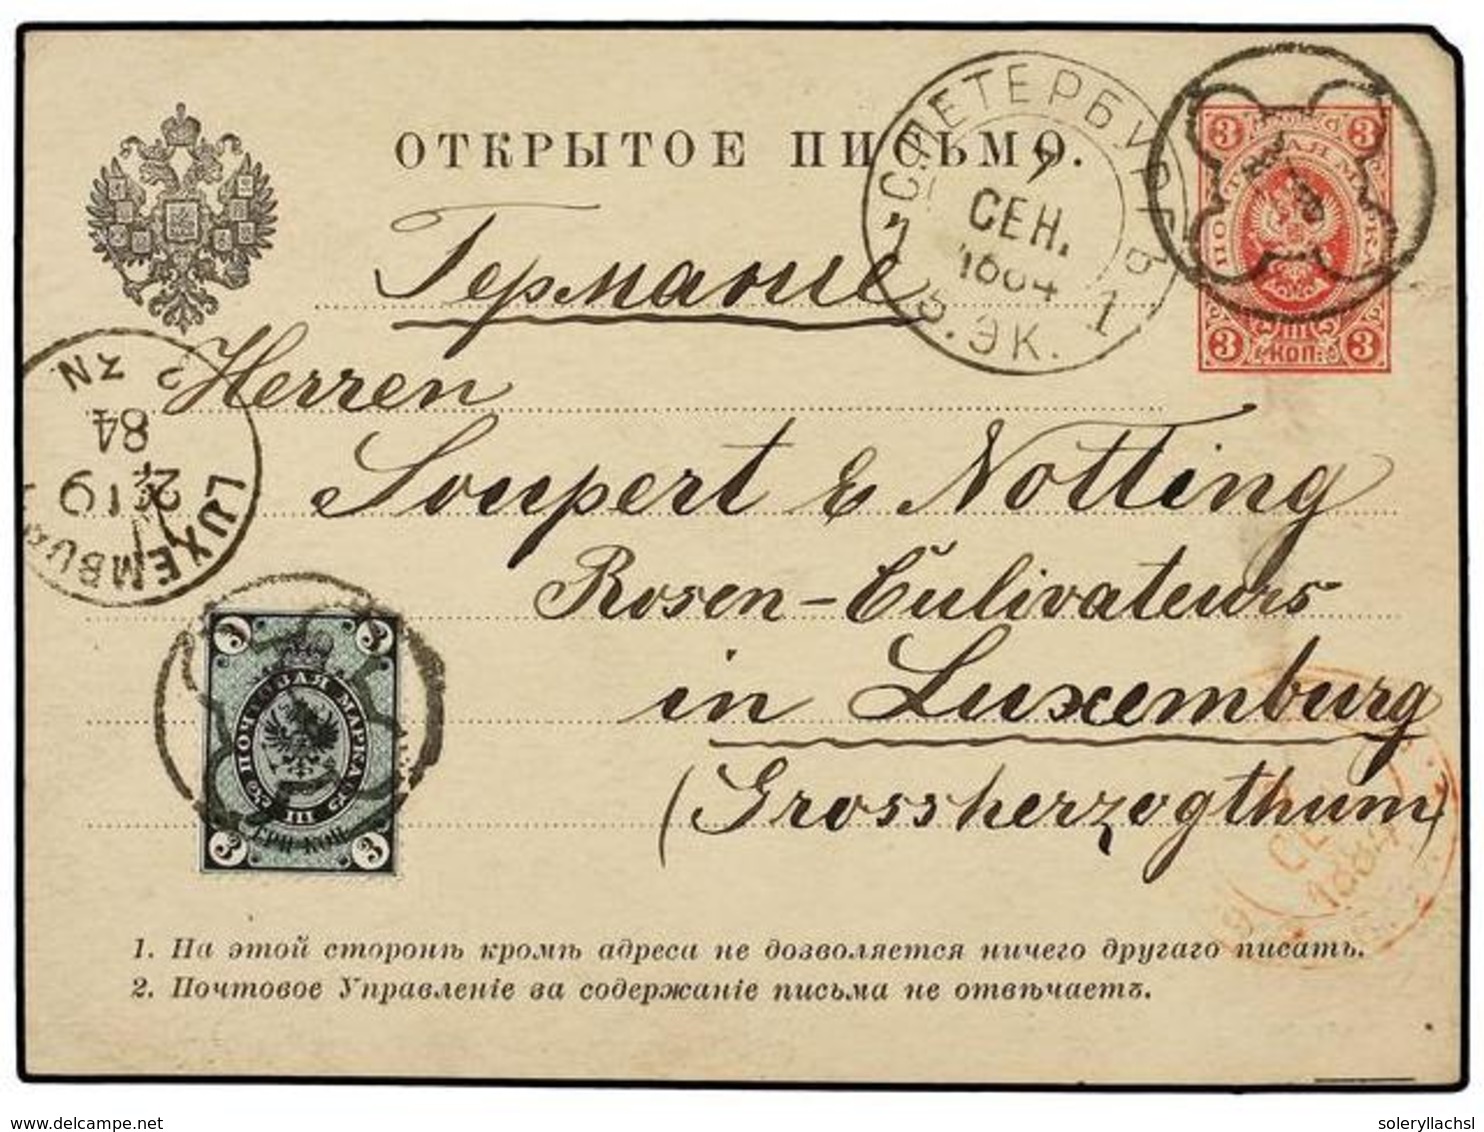 ОТКРЫТОЕ ПИСЬМО.
С.ПЕТЕРБУРГЪ
7
СЕН.
1884
5.ЭК. 1
3 3
ПОЧТОВАЯ МАРКА
3 КОП. 3
Германіе
Herren
Soupert & Notting
Rosen-Culivateurs
in Luxemburg
(Grossherzogthum)
LUXEMBURG
2 19
84
3 N
3 3
ПОЧТОВАЯ МАРКА
III
ТРИ КОП.
3 3
СЕН
1884
1. На этой сторонѣ кромѣ адреса не дозволяется ничего другаго писать.
2. Почтовое Управленіе за содержаніе письма не отвѣчаетъ.
www.delcampe.net
soleryllachsl